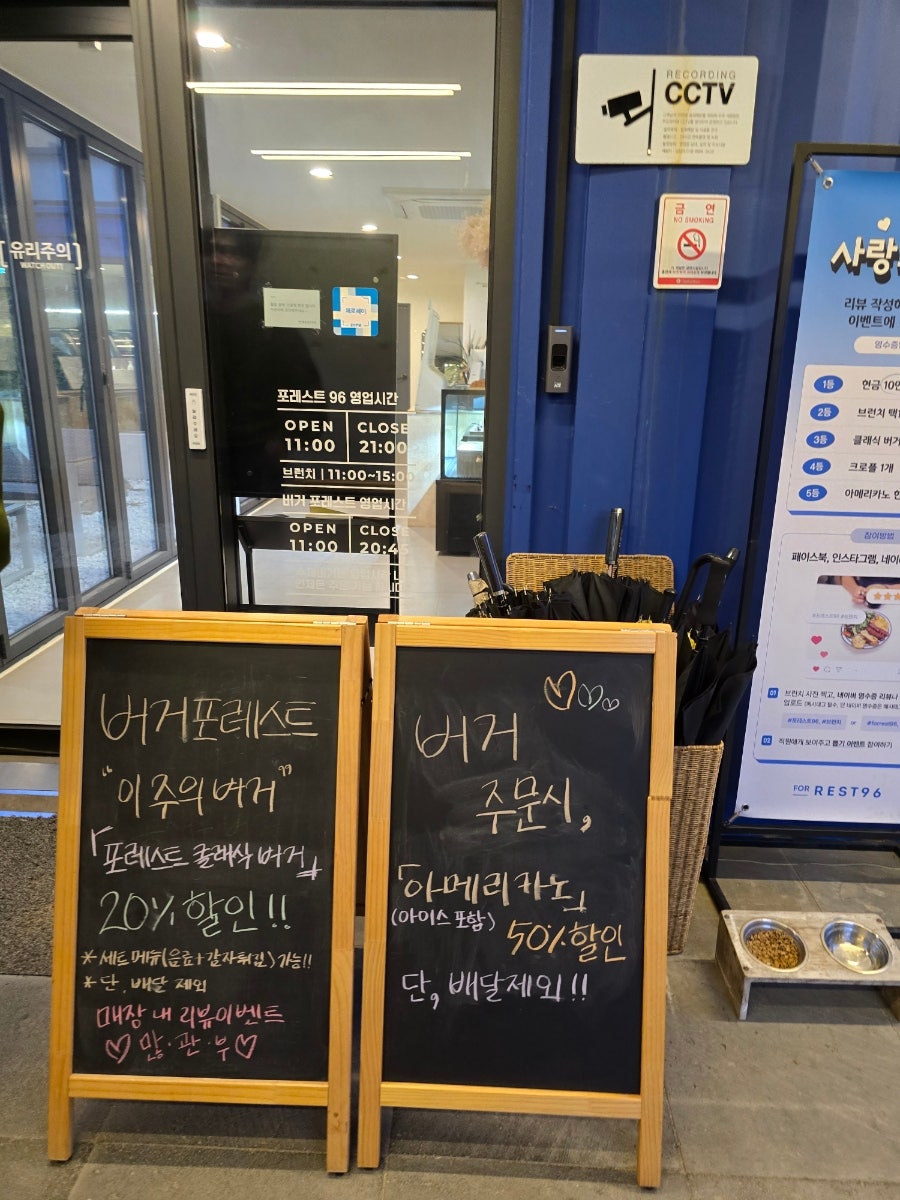 [유리주의]
WATCH OUT!
제로페이
포레스트 96 영업시간
OPEN
CLOSE
11:00
21:00
브런치 | 11:00~15:00
버거 포레스트 영업시간
OPEN
CLOSE
11:00
20:45
RECORDING
CCTV
금 연
NO SMOKING
사랑
리뷰 작성하
이벤트에
영수증
1등 현금 10만
2등 브런치 택
3등 클래식 버거
4등 크로플 1개
5등 아메리카노 한
참여방법
페이스북, 인스타그램, 네이
01 브런치 사진 찍고, 네이버 영수증 리뷰나
#포레스트96, #브런치 or #forrest96,
02 직원에게 보여주고 뽑기 이벤트 참여하기
FOR REST96
버거포레스트
"이 주의 버거"
「포레스트 클래식 버거」
20% 할인!!
*세트메뉴(음료+감자튀김) 가능!!
*단, 배달 제외
매장 내 리뷰이벤트
♡ 많·관·부 ♡
버거
주문시,
「아메리카노」
(아이스 포함)
50% 할인
단, 배달제외!!